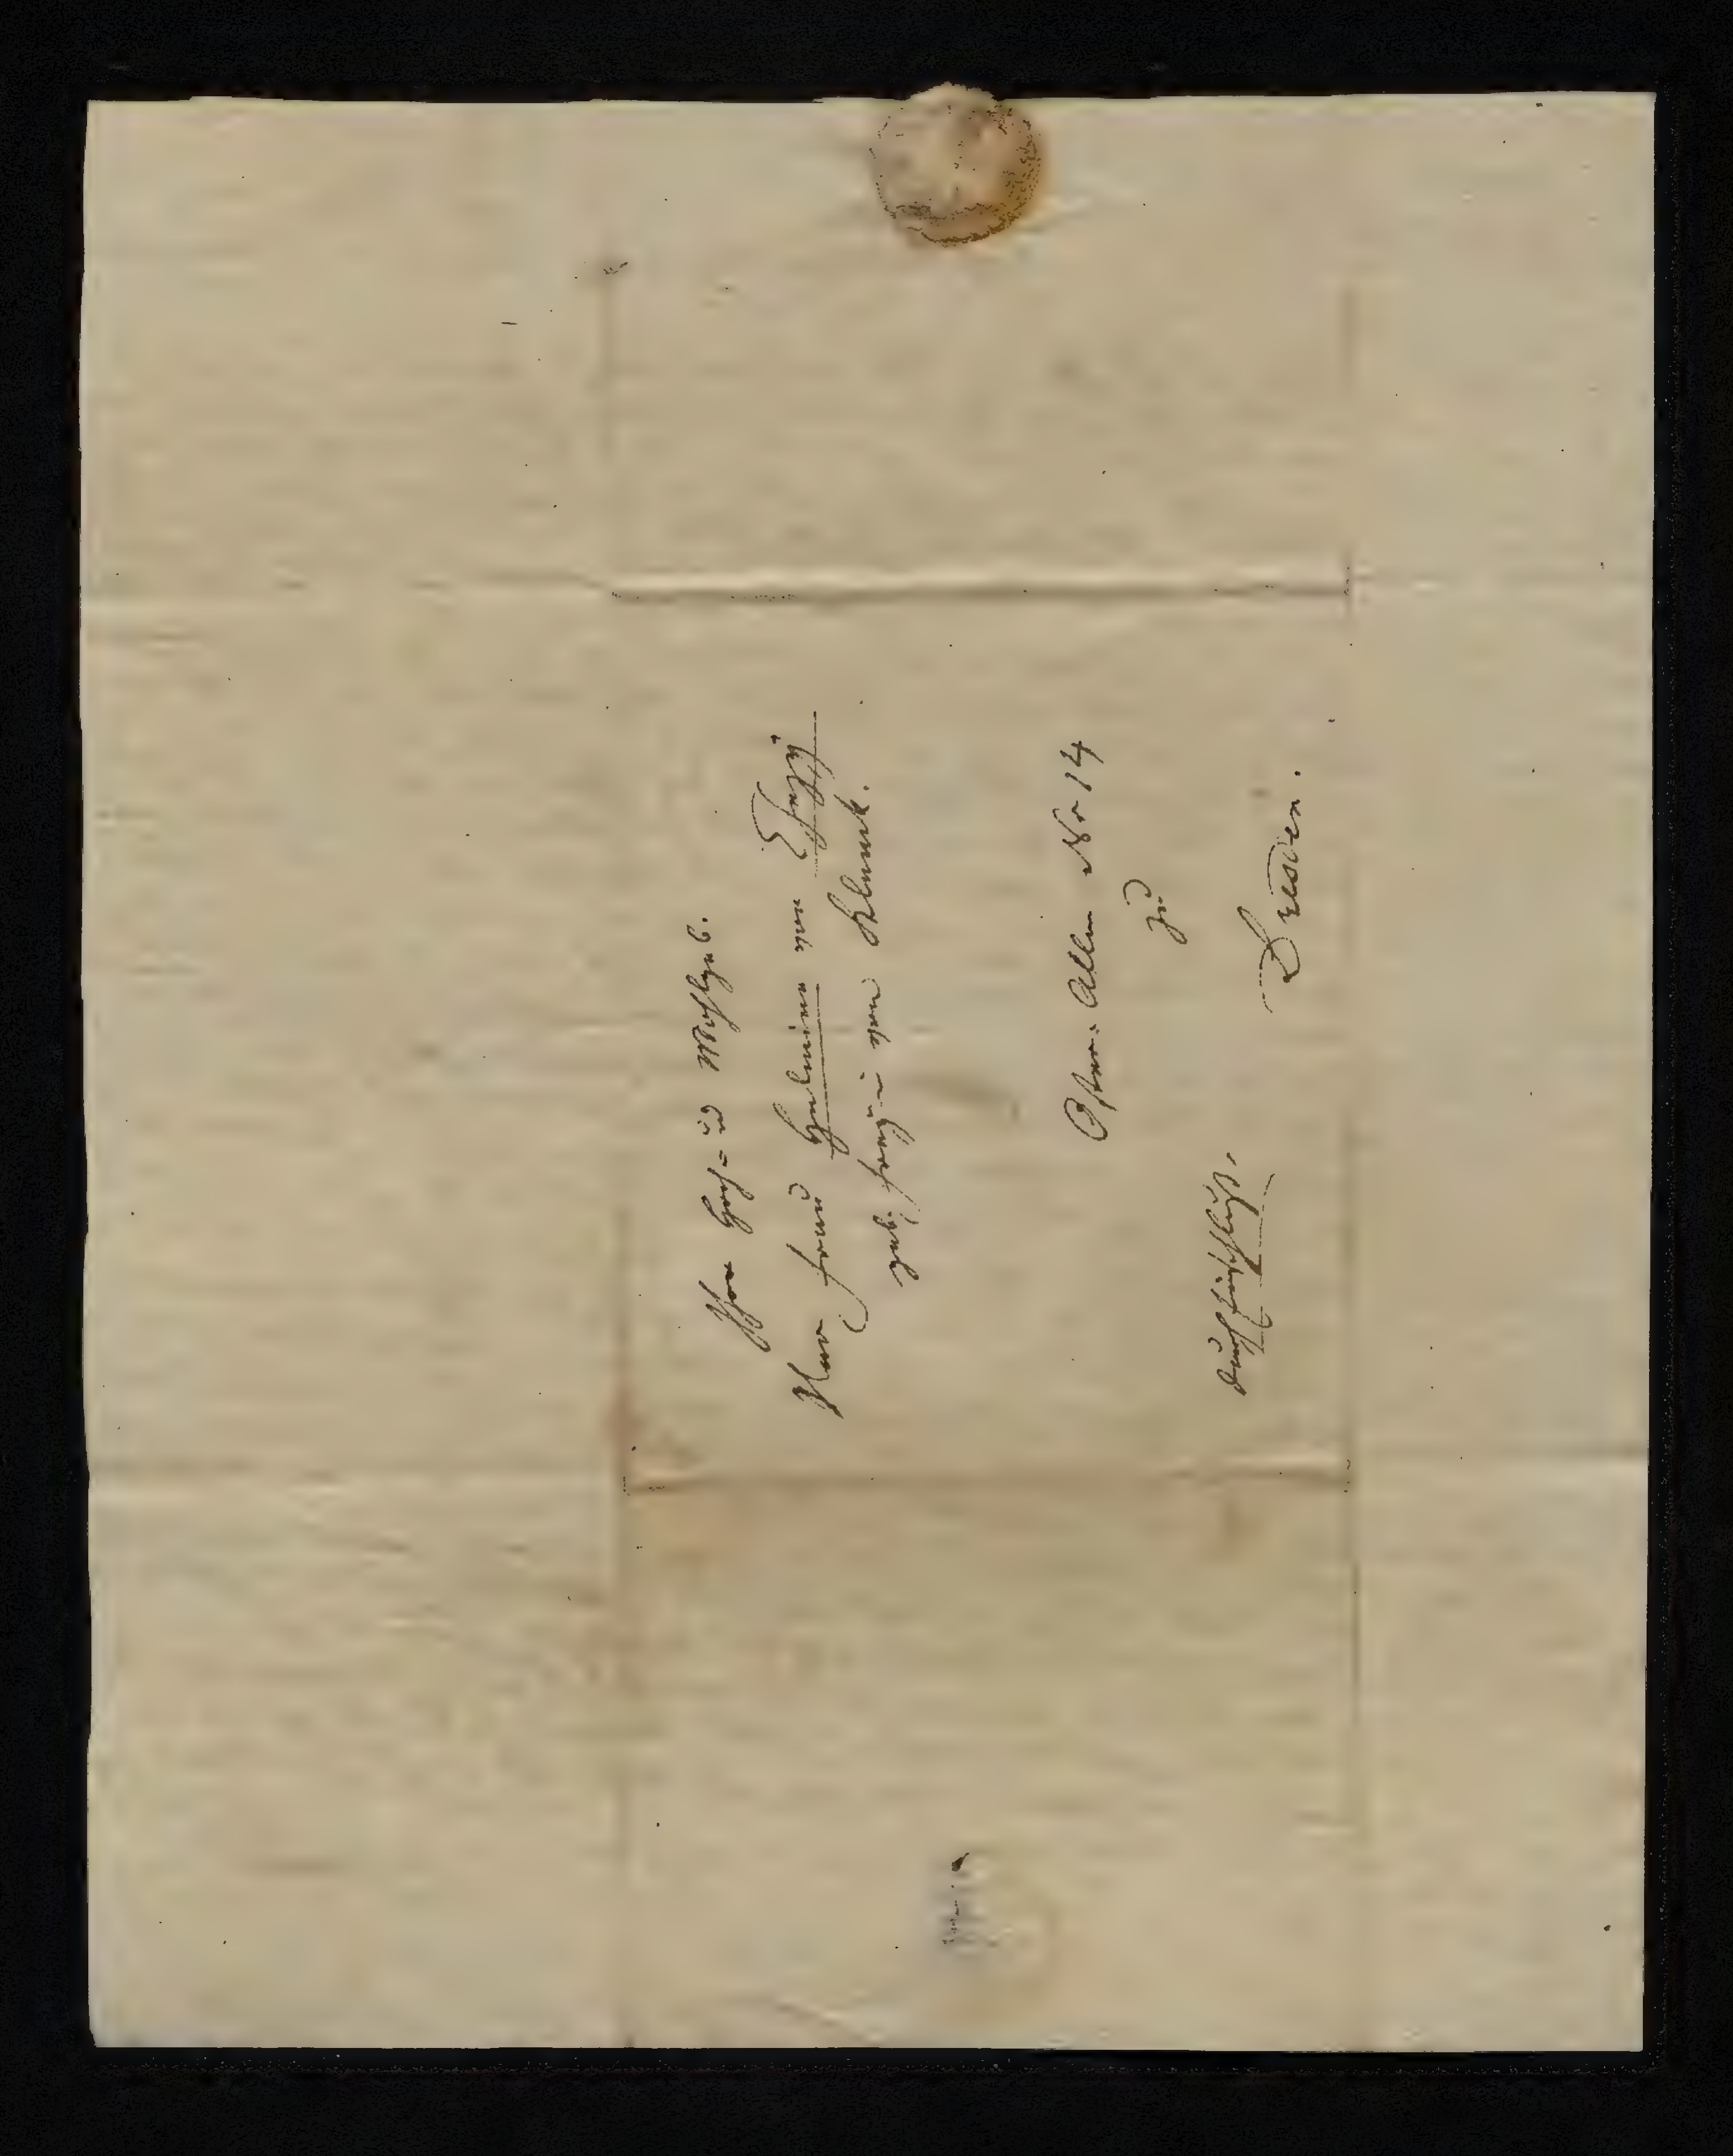 Ihro Hoch- ud Wohlgeb.
der Frau Helmine von Chezy
geb. Freyin von Klenck.
Oster: Allee No 14
zu
Dresden.
durch Einschluß.